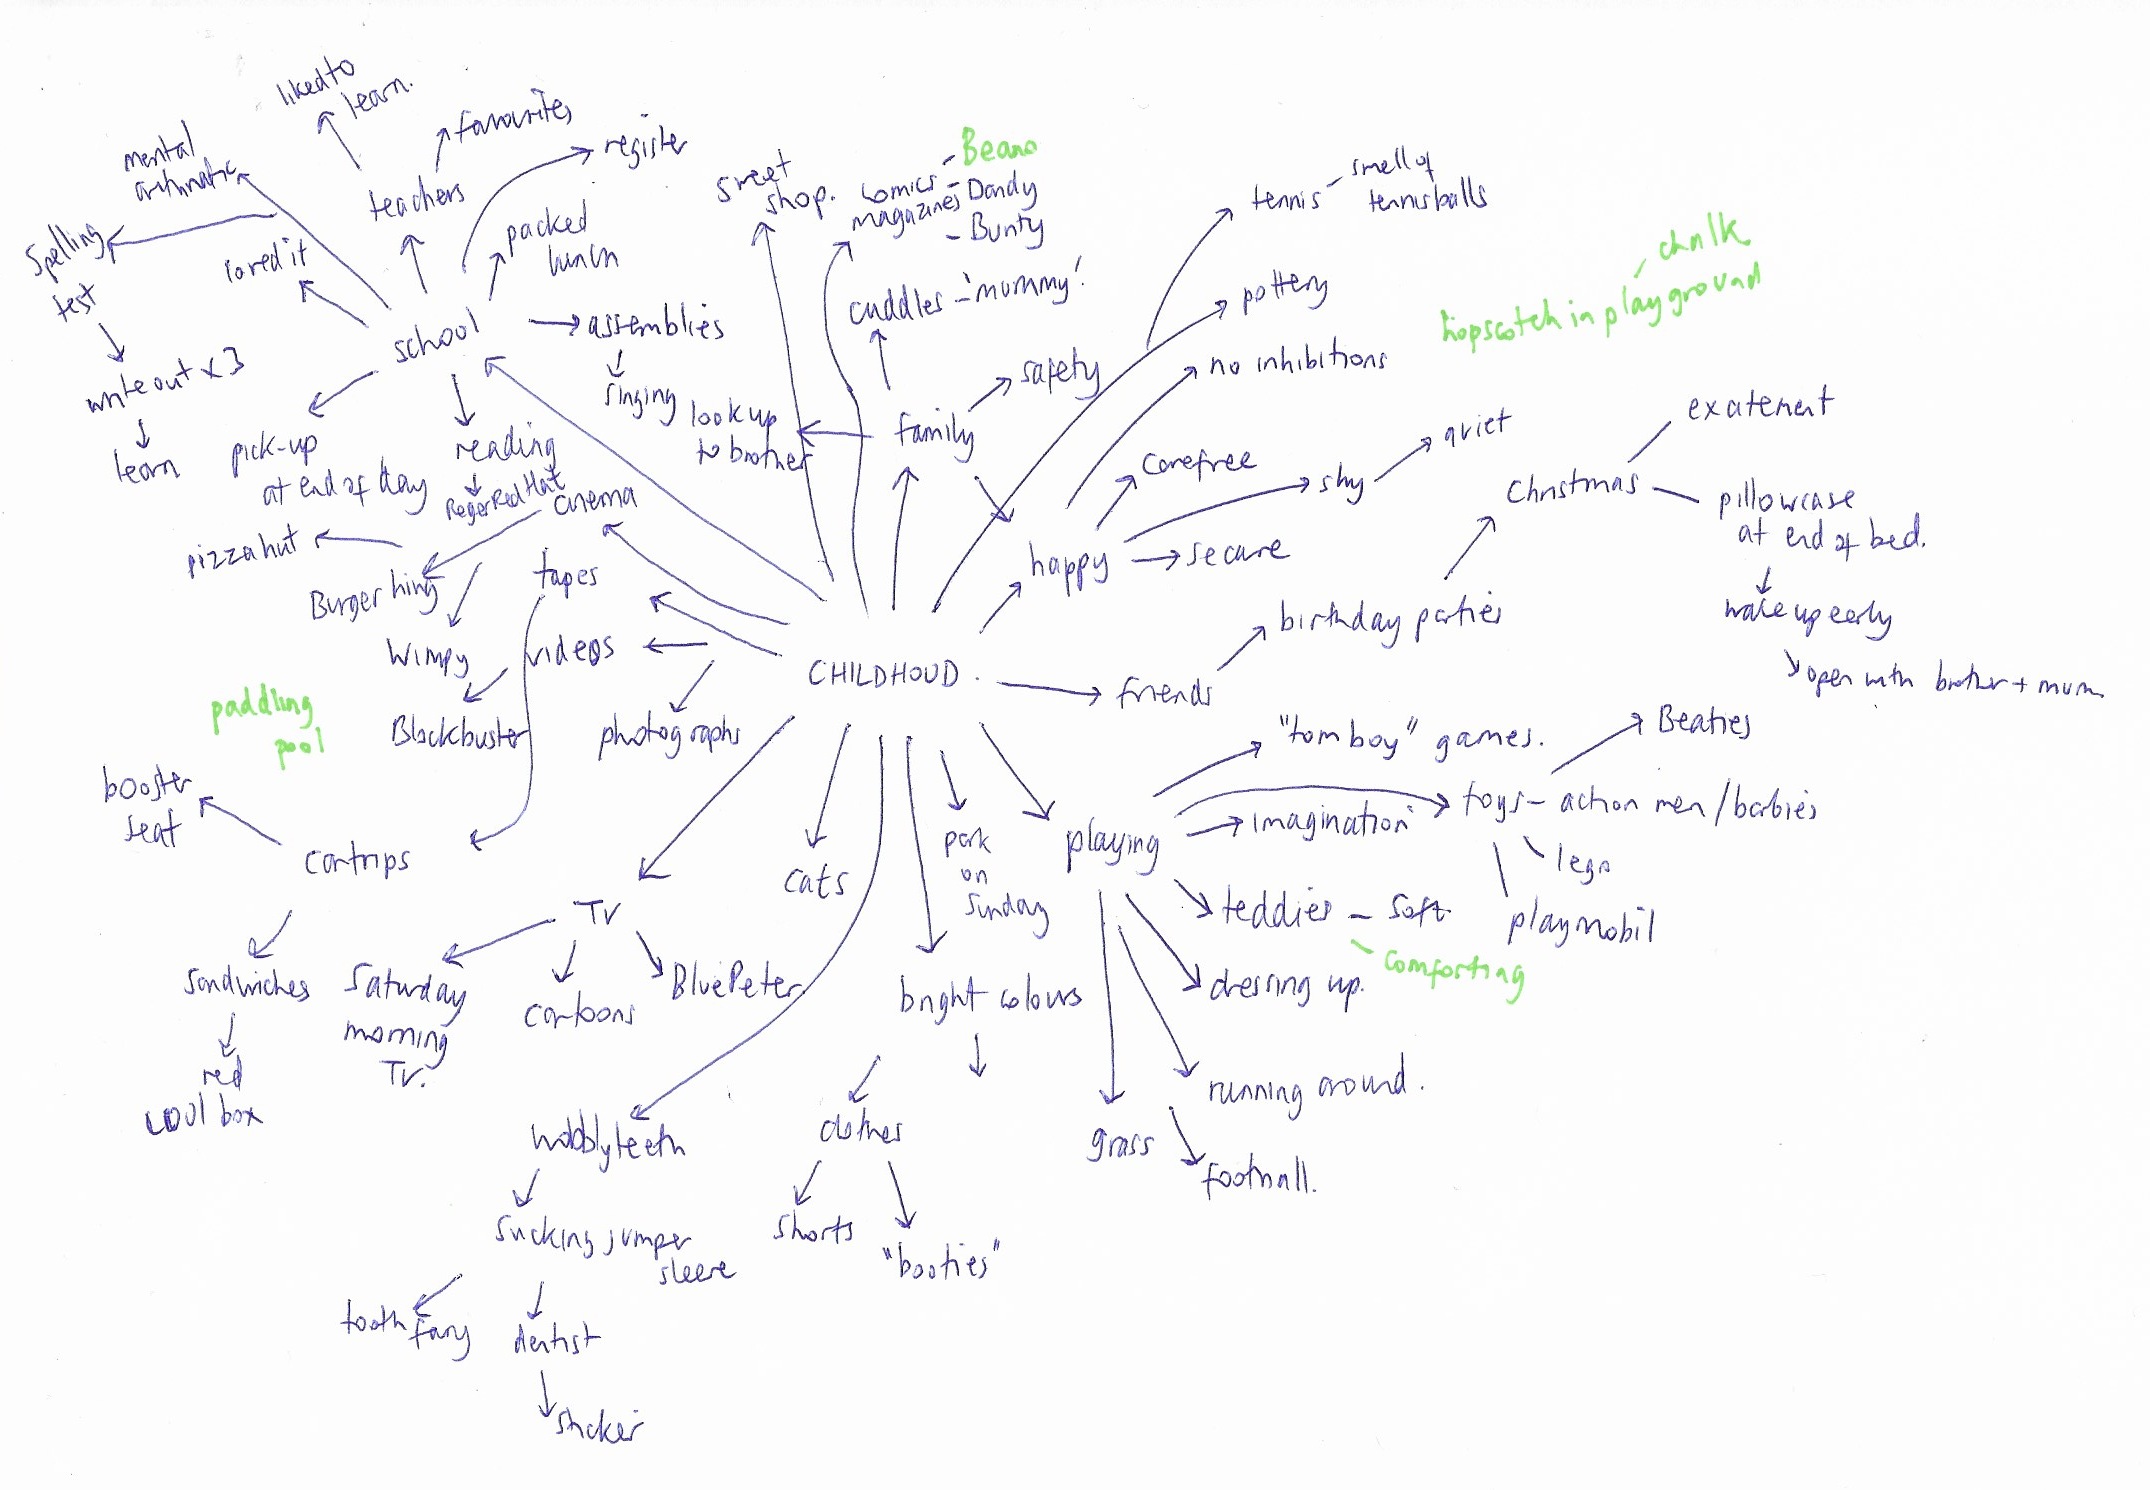 liked to
learn.
mental
arithmatic
teachers
favourites
register
Spelling
test
loved it
packed
lunch
school
assemblies
singing
write out x 3
learn
pick-up
at end of day
reading
Roger Red Hat
cinema
pizza hut
Burger king
Wimpy
tapes
videos
Blockbuster
photographs
sweet
shop.
comics
magazines
- Beano
- Dandy
- Bunty
cuddles - 'mummy'
look up
to brother
family
safety
tennis - smell of
tennis balls
pottery
no inhibitions
chalk
hopscotch in playground
happy
carefree
shy
quiet
secure
Christmas
excitement
pillowcase
at end of bed.
wake up early
open with brother + mum
birthday parties
CHILDHOOD
friends
paddling
pool
booster
seat
car trips
sandwiches
red
cool box
TV
Saturday
morning
TV.
cartoons
Blue Peter
cats
park
on
Sunday
bright colours
clothes
shorts
"booties"
wobbly teeth
sucking jumper
sleeve
tooth fairy
dentist
sticker
playing
"tomboy" games.
imagination
toys - action men / barbies
Beaties
lego
playmobil
teddies - soft
comforting
dressing up.
running around.
football.
grass